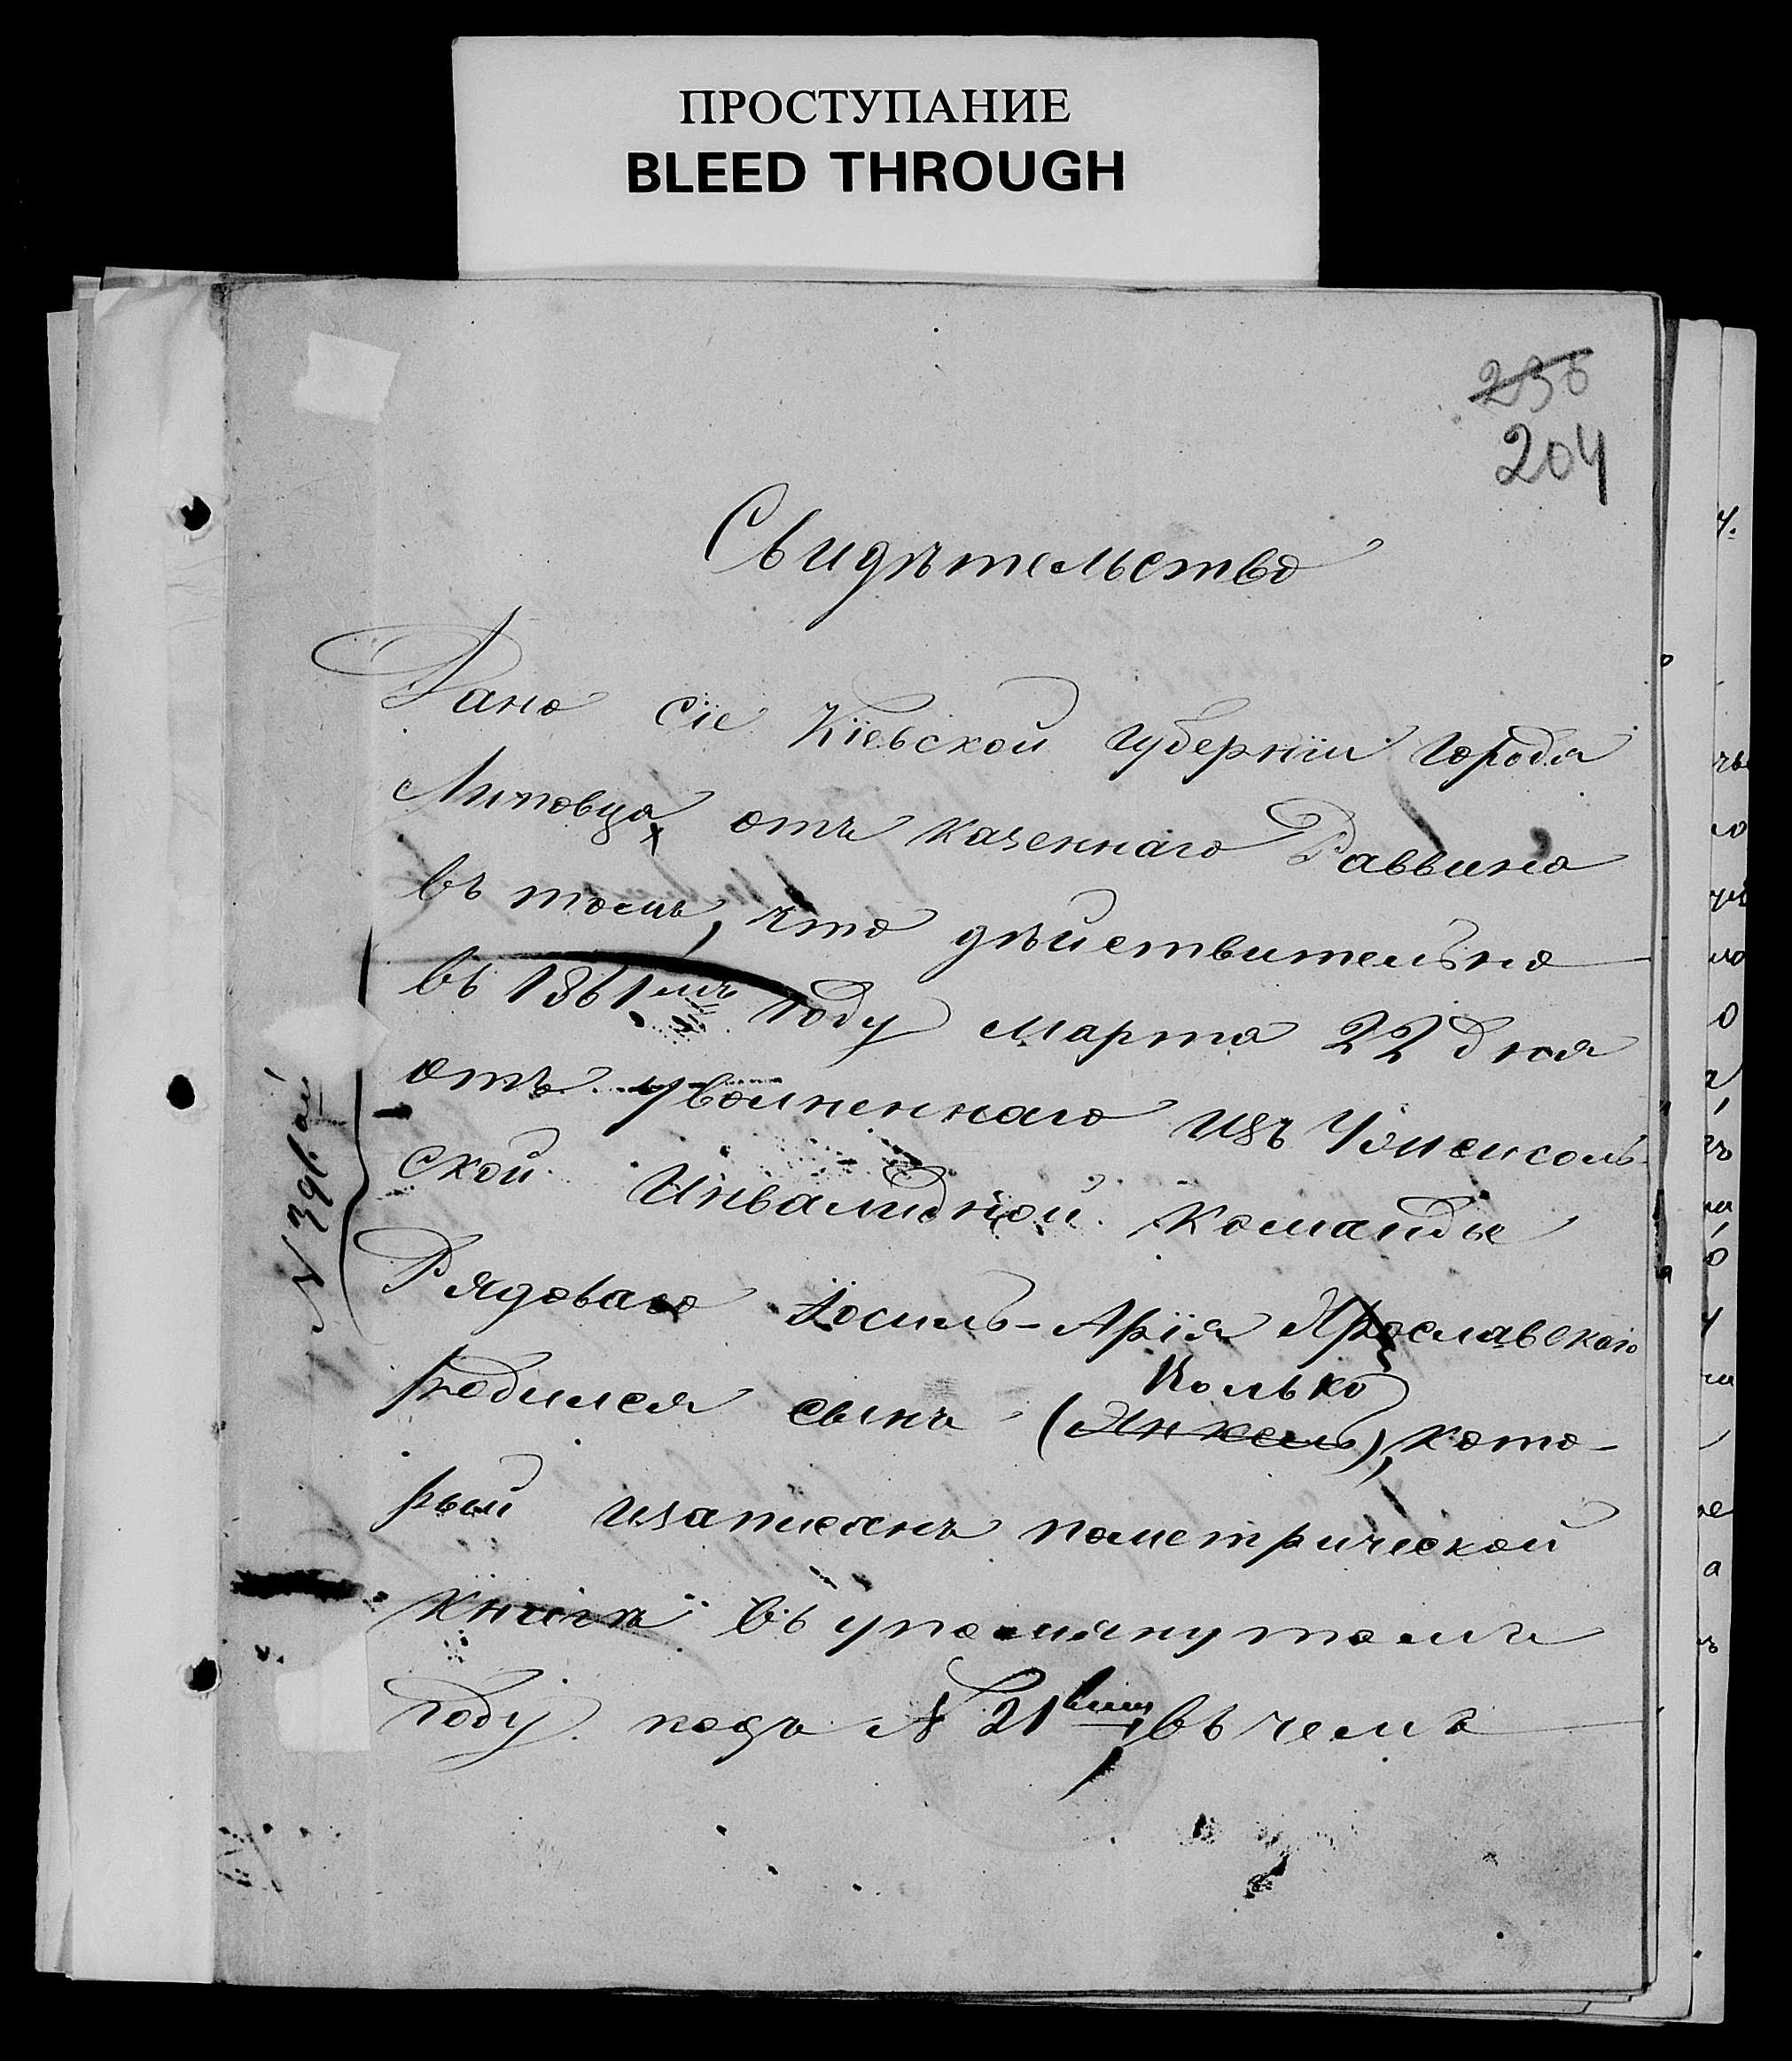 ПРОСТУПАНИЕ
BLEED THROUGH
236
204
Свидѣтельство
Дано сіе Кіевской губерніи города
Липовца отъ казеннаго Раввина
въ томъ, что дѣйствительно
въ 1861мъ году марта 22 дня
отъ уволненнаго изъ
ской Инвалидной команды
Рядоваго Іосиль-Арія Ярославскаго
родился сынъ (Янкель), кото-
Колько
рый изаписанъ пометрической
книгѣ въ упомянутомъ
году подъ № 21вымъ, въ чемъ